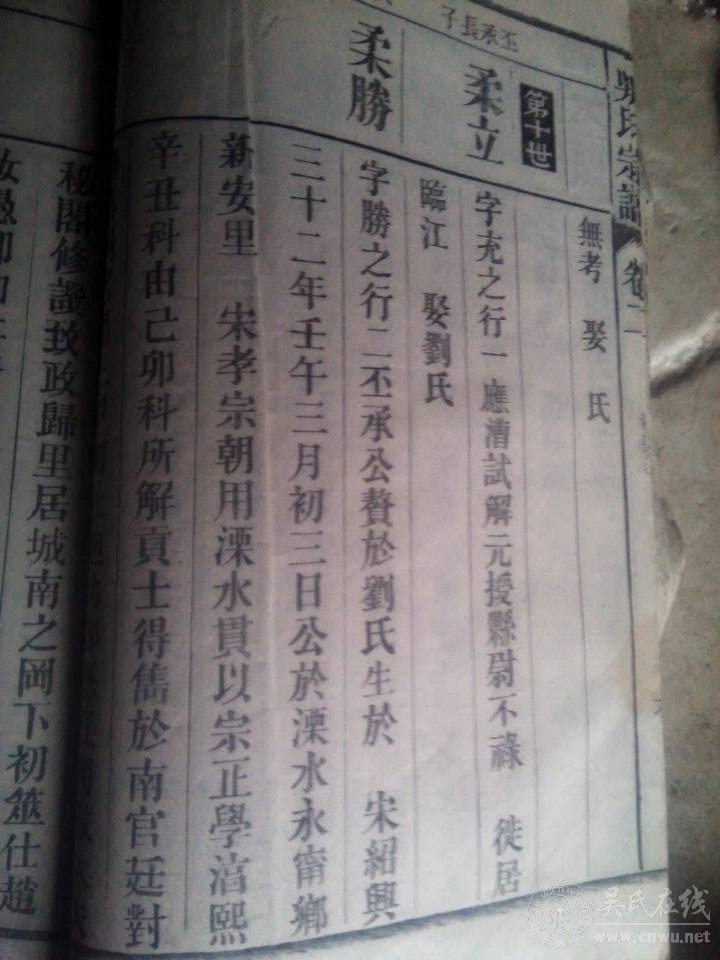 吳氏宗譜 卷二
無考 娶 氏
丕承長子
第十世
柔立
字充之行一應漕試解元授縣尉不祿 徙居
臨江 娶劉氏
柔勝
字勝之行二丕承公贅於劉氏生於 宋紹興
三十二年壬午三月初三日公於溧水永甯鄉
新安里 宋孝宗朝用溧水貫以宗正學湻熙
辛丑科由己卯科所解貢士得雋於南官廷對
秘閣修譔致政歸里居城南之岡下初筮仕趙
吴氏在线
www.cnwu.net